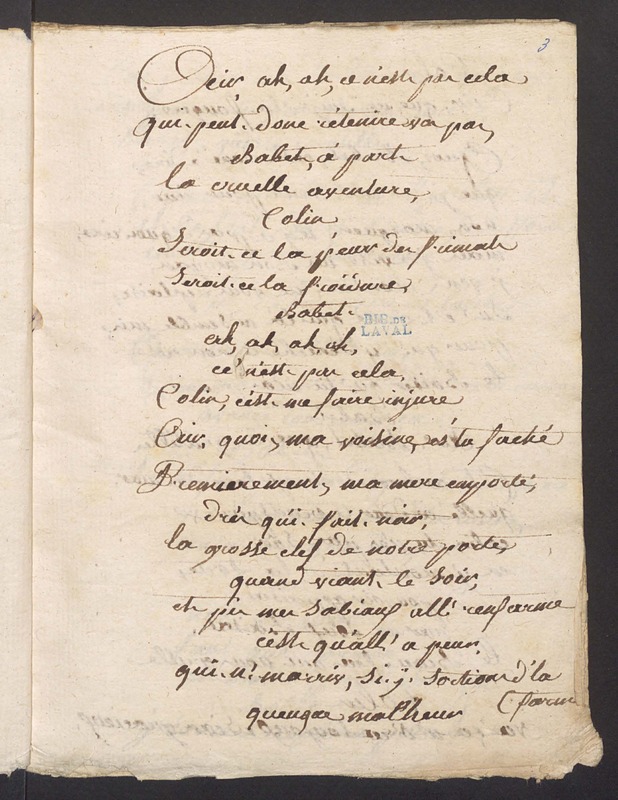 3
air ah, ah, ce n'est pas cela
qui peut donc retenire vos pas,
Babet, á part
la cruelle aventure,
Colin
Seroit-ce la peur des frimats
Seroit-ce la froidure,
Babet.
ah, ah, ah ah,
ce n'est pas cela,
Colin, c'est me faire injure
Air. quoi, ma voisine, es tu faché
Premierement, ma mere emporte,
drés qu'i fait noir,
la grosse clef de notre porte,
quand viant le Soir,
et pis mes Sabiaux all' renfarme
c'est qu'all' a peur,
qui n' m'arriv', Si j' Sortions d' la
farme
queuque malheur
BIB. DE
LAVAL